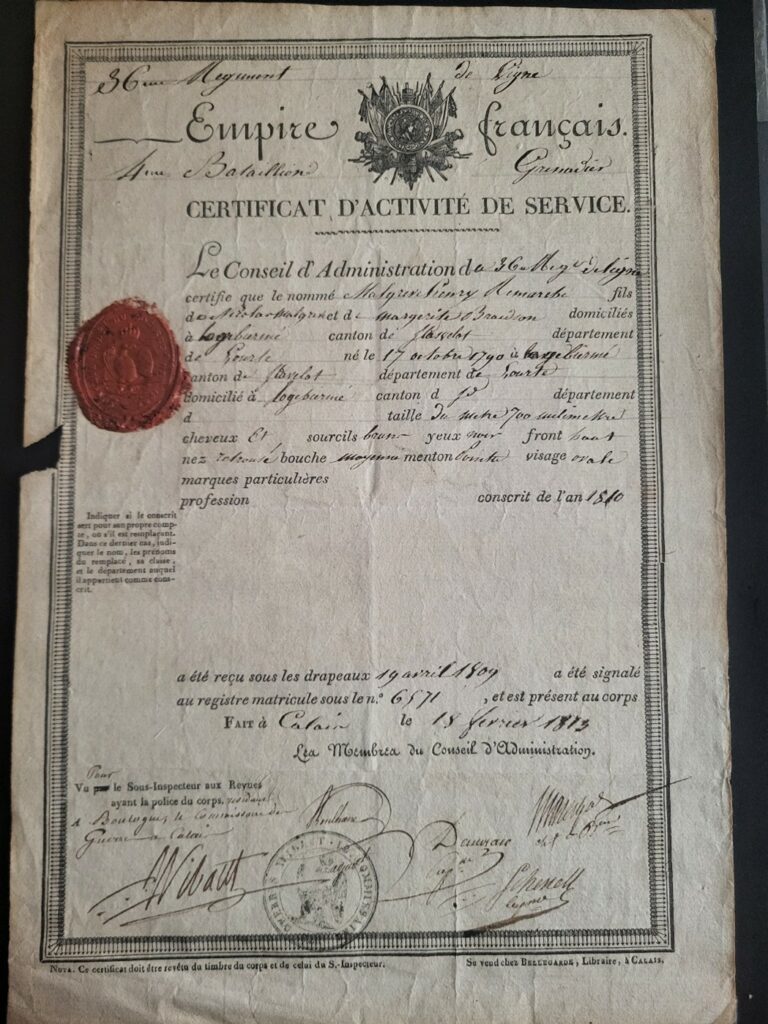 36me Regiment de Ligne
Empire français.
4me Bataillion Grenadier
CERTIFICAT D'ACTIVITÉ DE SERVICE.
Le Conseil d'Administration d u 36 Regt de Ligne
certifie que le nommé Henry Remarche fils
de Nicolas et de margerite domiciliés
à logebiermé canton de stavelot département
de Lourte né le 17 octobre 1790 à
canton de stavelot département de Lourte
domicilié à logebiermé canton d département
d taille du metre 700 milimettre
cheveux Et sourcils brun yeux noir front haut
nez retroussé bouche moyenne menton pointu visage ovale
marques particulières
profession conscrit de l'an 1810
Indiquer si le conscrit
sert pour son propre comp-
te, ou s'il est remplaçant.
Dans ce dernier cas, indi-
quer le nom, les prénoms
du remplacé, sa classe,
et le département auquel
il appartient comme cons-
crit.
a été reçu sous les drapeaux 19 avril 1809 a été signalé
au registre matricule sous le n.° 6571 , et est présent au corps
FAIT à Calais le 18 fevrier 1813
Les Membres du Conseil d'Administration.
Pour
Vu par le Sous-Inspecteur aux Revues
ayant la police du corps, residant
a Boulogne, le Commissaire de
Guerre a Calais
NOTA. Ce certificat doit être revêtu du timbre du corps et de celui du S.-Inspecteur. Se vend chez BELLEGARDE, Libraire, à CALAIS.